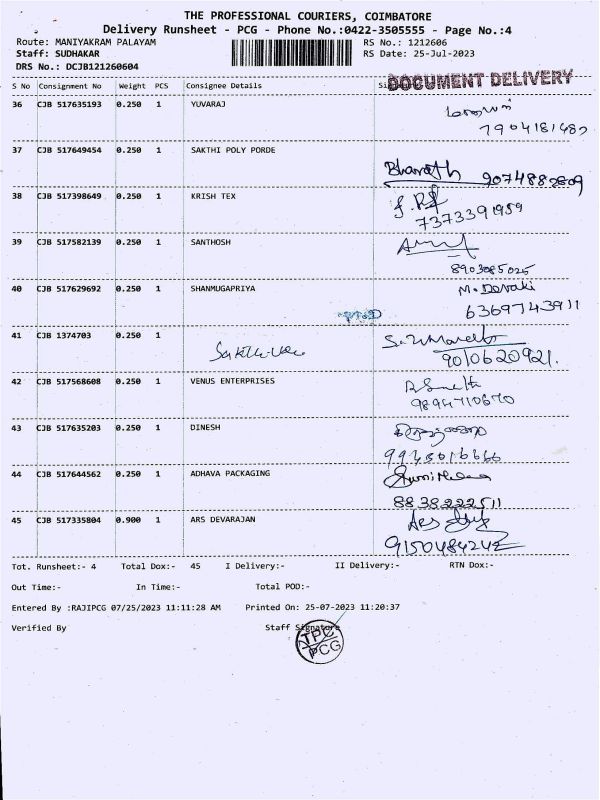 THE PROFESSIONAL COURIERS, COIMBATORE
Delivery Runsheet - PCG - Phone No.:0422-3505555 - Page No.:4
Route: MANIYAKRAM PALAYAM RS No.: 1212606
Staff: SUDHAKAR RS Date: 25-Jul-2023
DRS No.: DCJB121260604
DOCUMENT DELIVERY
S No Consignment No Weight PCS Consignee Details
36 CJB 517635193 0.250 1 YUVARAJ
37 CJB 517649454 0.250 1 SAKTHI POLY PORDE
Bharath 9074882809
38 CJB 517398649 0.250 1 KRISH TEX
7373391959
39 CJB 517582139 0.250 1 SANTHOSH
8903085025
40 CJB 517629692 0.250 1 SHANMUGAPRIYA M. Devaki
6369743911
41 CJB 1374703 0.250 1
9010620921.
42 CJB 517568608 0.250 1 VENUS ENTERPRISES
9894710670
43 CJB 517635203 0.250 1 DINESH
44 CJB 517644562 0.250 1 ADHAVA PACKAGING
8838222511
45 CJB 517335804 0.900 1 ARS DEVARAJAN ARS
9150484242
Tot. Runsheet:- 4 Total Dox:- 45 I Delivery:- II Delivery:- RTN Dox:-
Out Time:- In Time:- Total POD:-
Entered By :RAJIPCG 07/25/2023 11:11:28 AM Printed On: 25-07-2023 11:20:37
Verified By Staff Signature
TPC
PCG